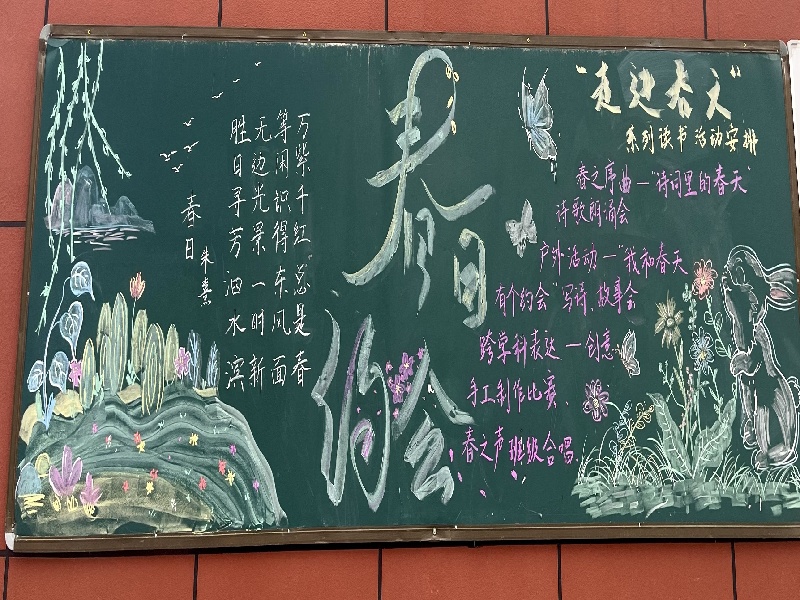 春日
朱熹
胜日寻芳泗水滨
无边光景一时新
等闲识得东风面
万紫千红总是春
春日
约会
“走进春天”
系列读书活动安排
春之序曲—“诗词里的春天”
诗歌朗诵会
户外活动—“我和春天
有个约会”写诗、故事会
跨学科表达—创意
手工制作比赛
春之声班级合唱